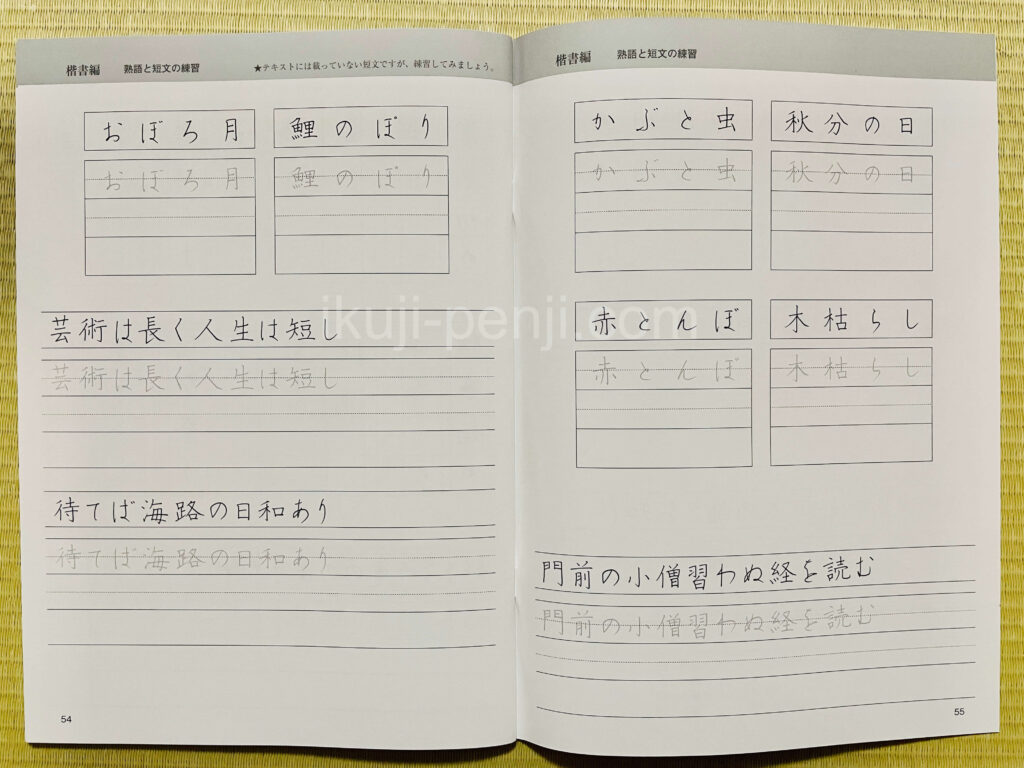 楷書編 熟語と短文の練習 ★テキストには載っていない短文ですが、練習してみましょう。
おぼろ月 鯉のぼり
おぼろ月 鯉のぼり
芸術は長く人生は短し
芸術は長く人生は短し
待てば海路の日和あり
待てば海路の日和あり
54
楷書編 熟語と短文の練習
かぶと虫 秋分の日
かぶと虫 秋分の日
赤とんぼ 木枯らし
赤とんぼ 木枯らし
門前の小僧習わぬ経を読む
門前の小僧習わぬ経を読む
55
ikuji-penji.com